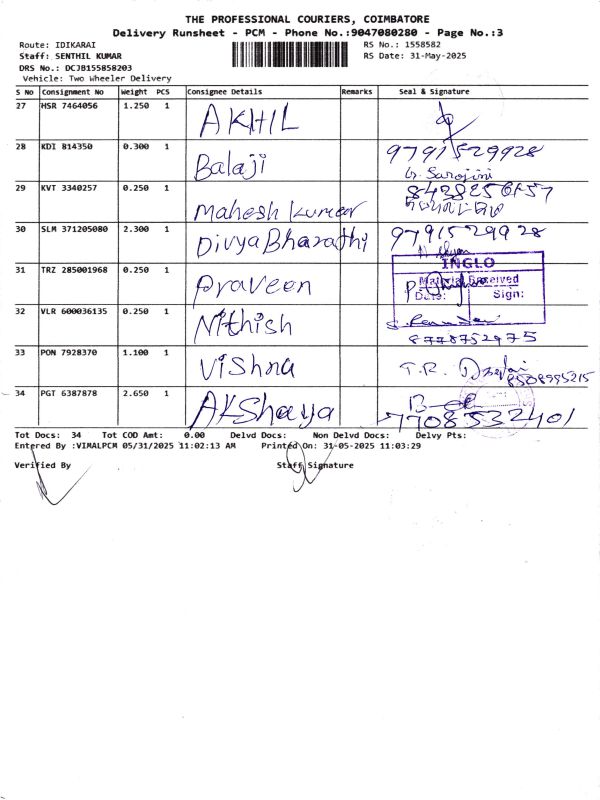 THE PROFESSIONAL COURIERS, COIMBATORE
Delivery Runsheet - PCM - Phone No.:9047080280 - Page No.:3
Route: IDIKARAI RS No.: 1558582
Staff: SENTHIL KUMAR RS Date: 31-May-2025
DRS No.: DCJB155858203
Vehicle: Two Wheeler Delivery
S No Consignment No Weight PCS Consignee Details Remarks Seal & Signature
27 HSR 7464056 1.250 1 AKHIL
28 KDI 814350 0.300 1 Balaji 9791529928
G. Sarojini
29 KVT 3340257 0.250 1 Mahesh Kumar
30 SLM 371205080 2.300 1 Divya Bharathi 9791529928
INGLO
Material Received
Date: Sign:
31 TRZ 285001968 0.250 1 Praveen
32 VLR 600036135 0.250 1 Nithish
8778752975
33 PON 7928370 1.100 1 Vishna T.R.
8508995215
34 PGT 6387878 2.650 1 Akshaya
7708532401
Tot Docs: 34 Tot COD Amt: 0.00 Delvd Docs: Non Delvd Docs: Delvy Pts:
Entered By :VIMALPCM 05/31/2025 11:02:13 AM Printed On: 31-05-2025 11:03:29
Verified By Staff Signature